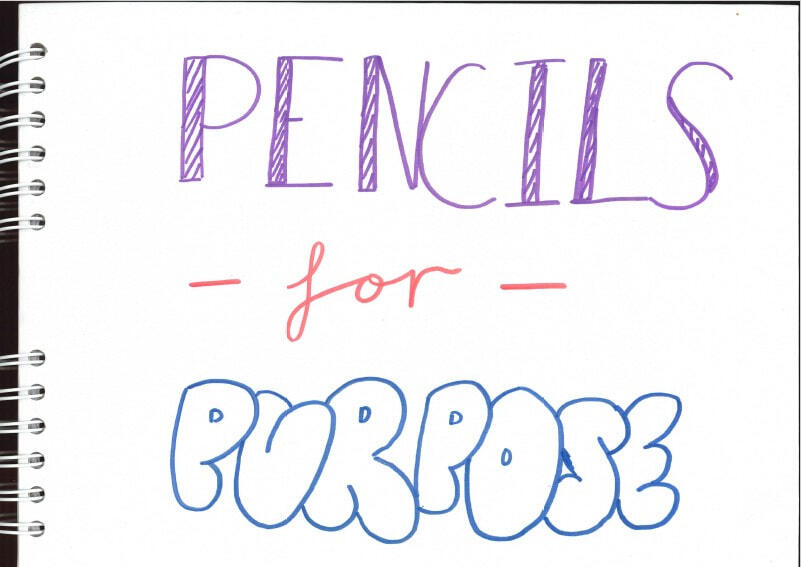 PENCILS
- for -
PURPOSE